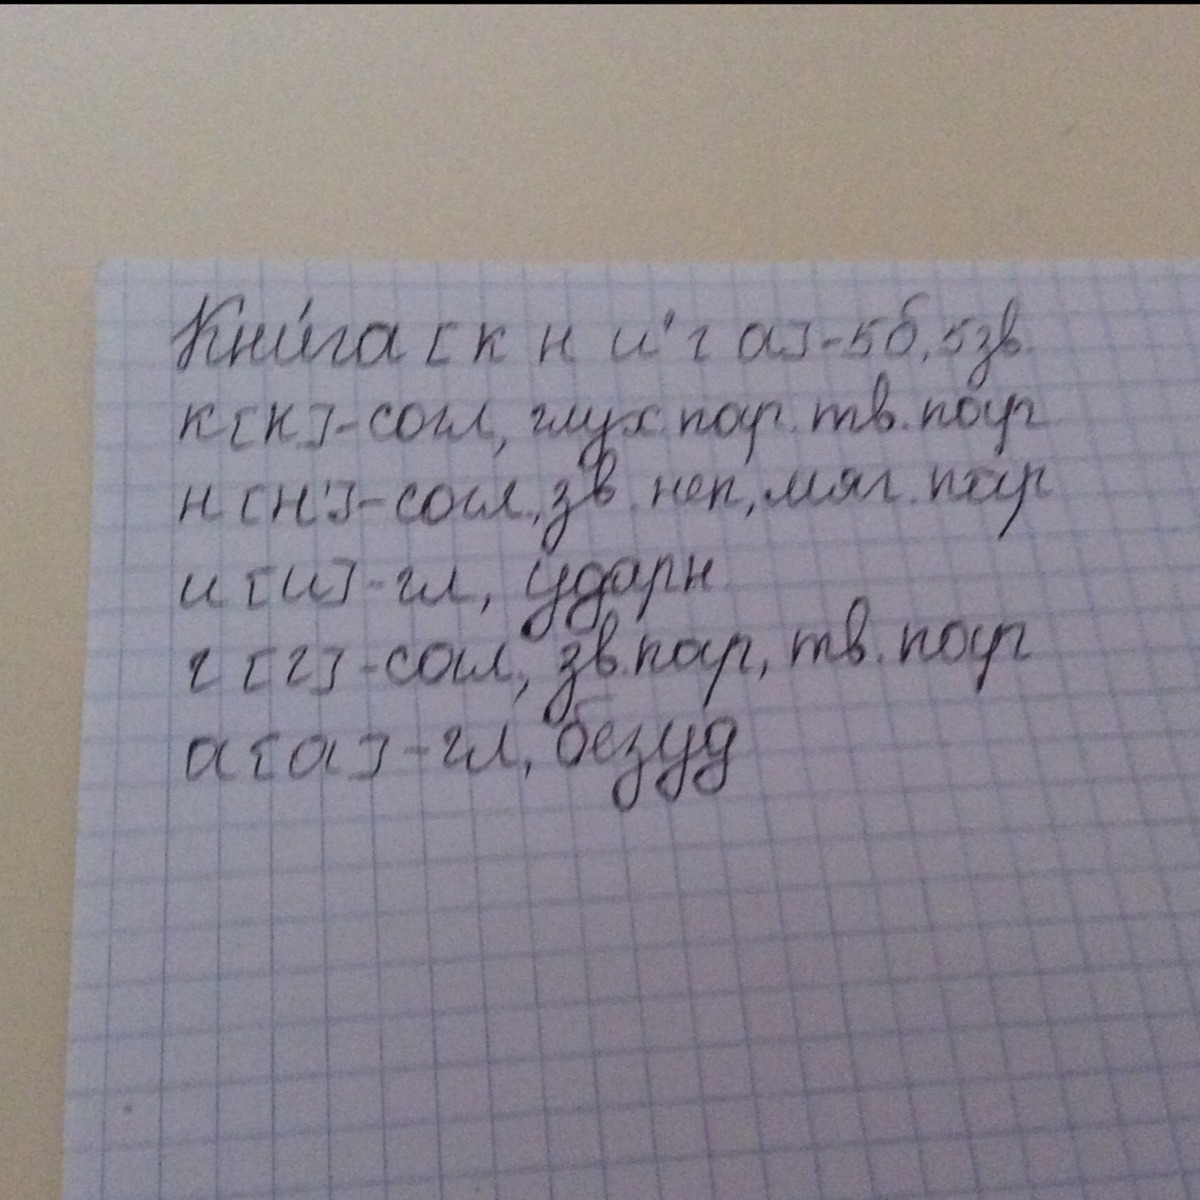 Кни́га [к н и' г а]-5б, 5зв.
к[к]-согл, глух.пар. тв.пар
н[н']-согл, зв.неп, мяг.пар
и[и]-гл, ударн
г[г]-согл, зв.пар, тв.пар
а[а]-гл, безуд